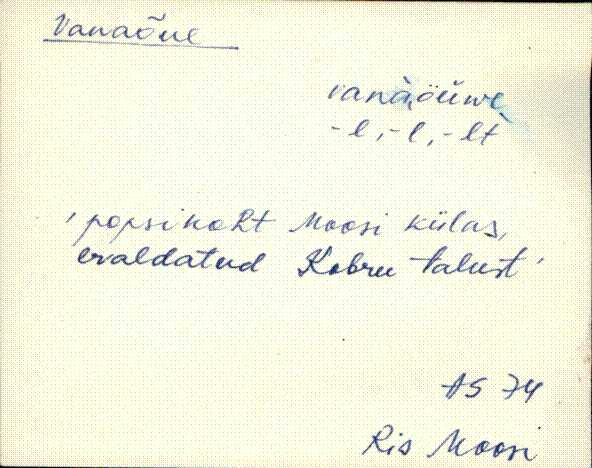 Vanaõue
vanà,õüwe
-l, -l, -lt
'popsikoht Moosi külas,
eraldatud Kobru talust'
AS 74
Ris Moosi